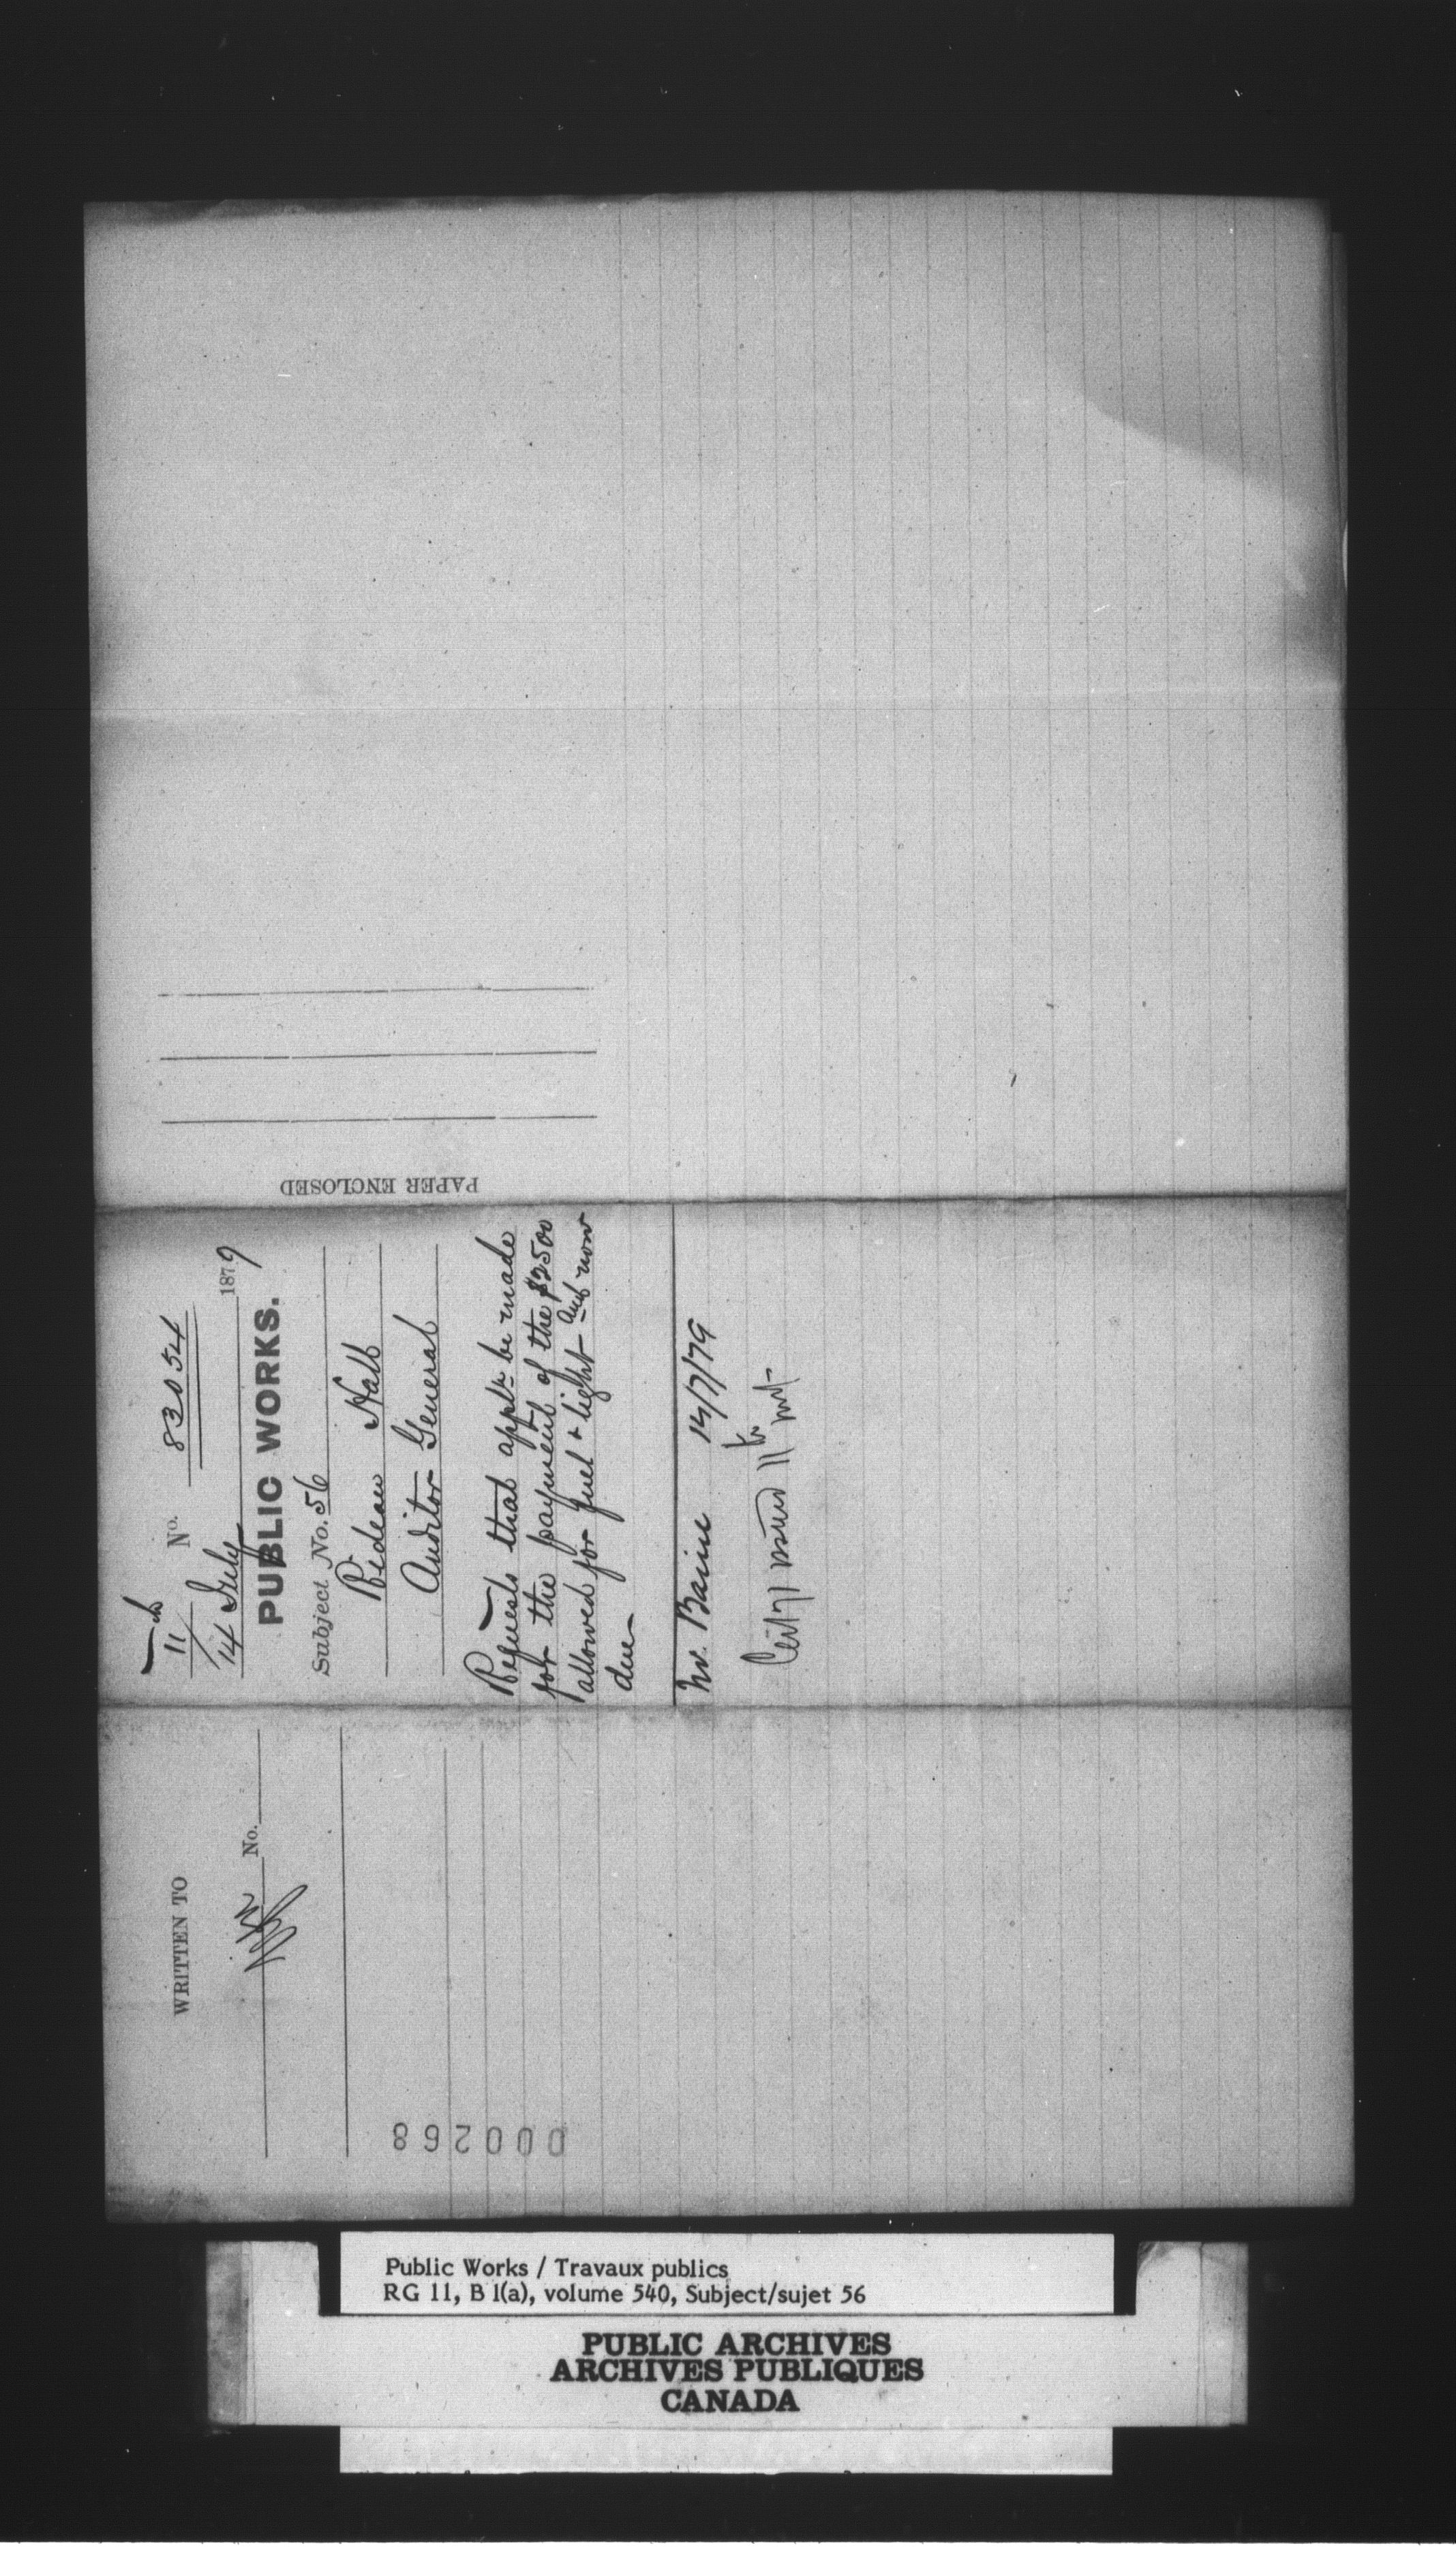 11 No. 83054
14 July 1879
PUBLIC WORKS.
Subject No. 56
Rideau Hall
Auditor General
Requests that appln be made
for the payment of the $2500
allowed for fuel & light and now
due
Mr. Baine 14/7/79
issued 11th
PAPER ENCLOSED
WRITTEN TO
No.
000268
Public Works / Travaux publics
RG 11, B 1(a), volume 540, Subject/sujet 56
PUBLIC ARCHIVES
ARCHIVES PUBLIQUES
CANADA